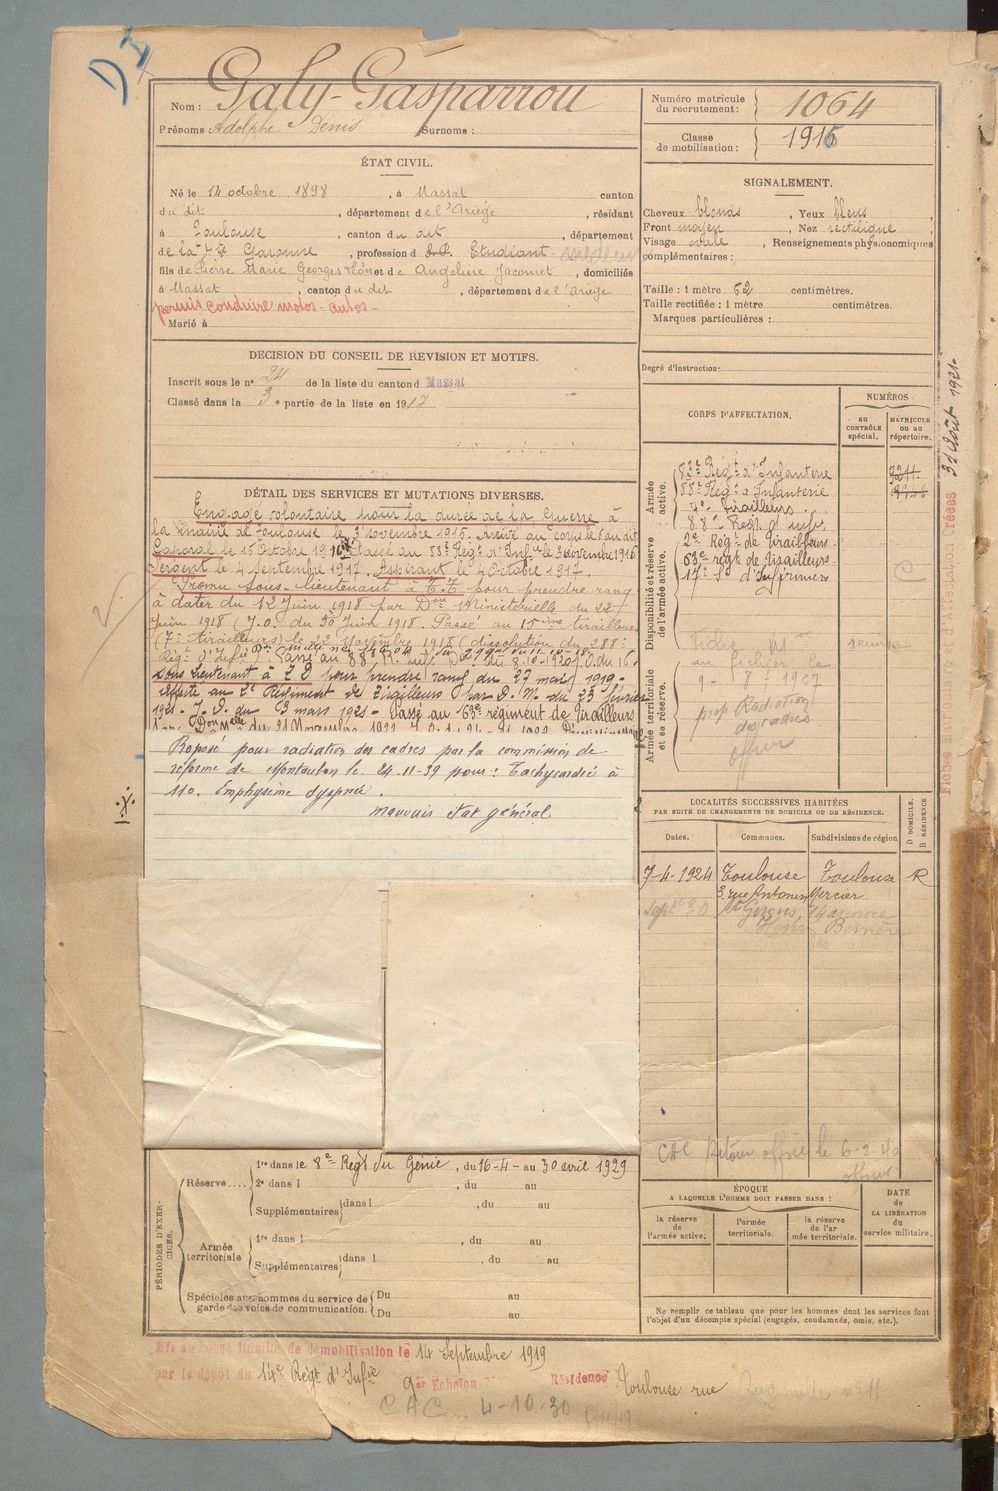 Nom : Galy-Gasparrou
Prénoms Adolphe Denis Surnoms :
Numéro matricule du recrutement : 1064
Classe de mobilisation : 1916
ÉTAT CIVIL.
Né le 14 octobre 1898, à Massat canton
du dit, département de l'Ariège, résidant
à Toulouse, canton du dit, département
de la Hte Garonne, profession d Etudiant médecin
fils de Pierre Marie Georges Léon et de Angeline Jacomet, domiciliés
à Massat, canton du dit, département de l'Ariège
permis conduire motos - autos -
Marié à
SIGNALEMENT.
Cheveux blonds, Yeux bleus,
Front moyen, Nez rectiligne,
Visage ovale, Renseignements physionomiques
complémentaires :
Taille : 1 mètre 62 centimètres.
Taille rectifiée : 1 mètre centimètres.
Marques particulières :
Degré d'instruction :
DECISION DU CONSEIL DE REVISION ET MOTIFS.
Inscrit sous le n° 24 de la liste du canton d Massat
Classé dans la 3e partie de la liste en 1917
DÉTAIL DES SERVICES ET MUTATIONS DIVERSES.
Engagé volontaire pour la durée de la Guerre à
la mairie de Toulouse le 3 Novembre 1915. Arrivé au corps le
Caporal le 15 Octobre 1916 Passé au 88e Régt d'Infie le 3 Novembre 1916
Sergent le 4 Septembre 1917. Aspirant le 4 Octobre 1917.
Promu Sous-lieutenant à T.T. pour prendre rang
à dater du 12 Juin 1918 par Don Ministérielle du 22
Juin 1918 (J.O. du 30 Juin 1918. Passé au 15ème tirailleurs
(7e tirailleurs) le 22 Novembre 1918 (dissolution du 288e
Régt d'Infie Passé au 88e R. Inf. du 8.10.1920
Sous Lieutenant à T D pour prendre rang du 27 mars 1919 -
affecté au 2e Régiment de Tirailleurs par D. M. du 23 février
1921 - J. O. du 3 mars 1921 - Passé au 63e régiment de Tirailleurs
du 21 Novembre 1922
Proposé pour radiation des cadres par la commission de
réforme de Montauban le 24-11-39 pour : Tachycardie à
110. Emphysème dyspnée.
mauvais état général
CORPS D'AFFECTATION.
NUMÉROS
au CONTRÔLE spécial.
MATRICULE ou au répertoire.
Armée active.
83e Régt d'Infanterie
88e Régt d'Infanterie
7e Tirailleurs
88e Régt d'infie
Disponibilité et réserve de l'armée active.
2e Régt de Tirailleurs
63e régt de Tirailleurs
17e Son d'Infirmiers
Armée territoriale et sa réserve.
au fichier le
9 - 8 - 1927
prop Radiation
des cadres
Fiches matricule et d'Affectation Créées 31 Août 1921
LOCALITÉS SUCCESSIVES HABITÉES
PAR SUITE DE CHANGEMENTS DE DOMICILE OU DE RÉSIDENCE.
Dates. Communes. Subdivisions de région D DOMICILE. R RÉSIDENCE
7-4-1924 Toulouse Toulouse R
3 rue Antonin Mercier
Septbre 30 St Girons, 14 avenue
CAC Retour officie le 6-2-40
ÉPOQUE
A LAQUELLE L'HOMME DOIT PASSER DANS :
la réserve de l'armée active.
l'armée territoriale.
la réserve de l'armée territoriale.
DATE de LA LIBÉRATION du service militaire.
Ne remplir ce tableau que pour les hommes dont les services font
l'objet d'un décompte spécial (engagés, condamnés, omis, etc.).
PÉRIODES D'EXERCICES.
Réserve.... 1re dans le 8e Regt du Génie, du 16-4- au 30 avril 1929
2e dans l , du au
Supplémentaires dans l , du au
Armée territoriale 1re dans l , du au
Supplémentaires dans l , du au
Spéciales aux hommes du service de garde des voies de communication. Du au
Du au
Mis en congé illimité de démobilisation le 14 Septembre 1919
par le dépôt du 14e Régt d'Infie
Echelon Résidence Toulouse rue
CAC 4-10-30